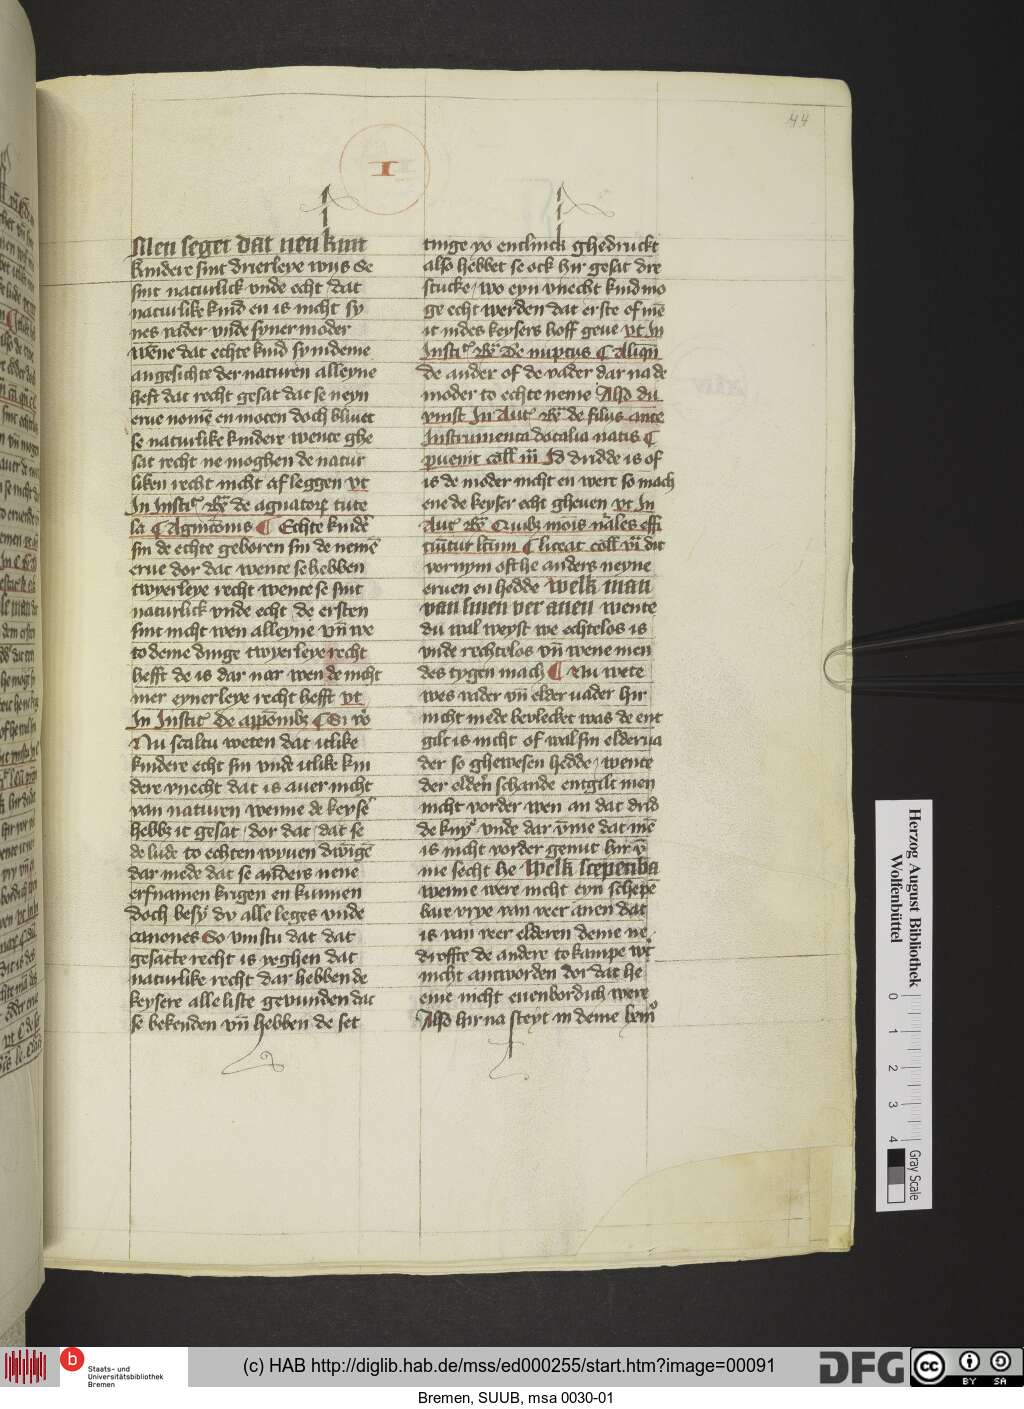 44
I
Men seget dat nen kint
kindere sint drierleye wijs Se
sint naturlick vnde echt dat
naturlike kind en is nicht sy
nes vader vnde syner moder
wēne dat echte kind sy in deme
angesichte der naturen alleyne
heft dat recht gesat dat se neyn
erue nomē en moten doch bliuet
se naturlike kindere wente ghe
sat recht ne moghen de natur
liken recht nicht af leggen vt
In Insti de agnatorum tute
la ¶ Agnitionis ¶ Echte kinder
sin de echte geboren sin de nemē
erue dor dat wente se hebben
twyerleye recht wente se sint
naturlick vnde echt de ersten
sint nicht wen alleyne vn̄ we
to deme dinge twyerleye recht
hefft de is dar nar wen de nicht
mer eynerleye recht hefft vt
In Instit De
Nu scaltu weten dat itlike
kindere echt sin vnde itlike kin
dere vnecht dat is auer nicht
van naturen wenne de keyser
hebbē it gesat dor dat dat se
de lude to echten wyuen dwigē
dar mede dat se anders nene
erfnamen krigen en kunnen
doch besy dv alle leges vnde
canones So vinstu dat dat
gesatte recht is yeghen dat
naturlike recht dar hebben de
keysere alle liste gevunden dat
se bekenden vn̄ hebben de set
tinge vo entlinck ghedruckt
also hebbet se ock hir gesat dre
stucke wo eyn vnecht kind mo
ge echt werden dat erste of mē
it in des keysers hoff geue vt In
Insti de nupcus ¶ Aliqn̄
De ander of de vader dar na de
moder to echte neme Also du
vinst In Aut de filiis ante
Instrumenta dotalia natis ¶
puenit coll iiii Id dridde is of
is de moder nicht en were so mach
ene de keyser echt gheuen vt In
Aut Quibz mois nales effi
¶ liceat coll vi dit
vornym ofthe anders neyne
eruen en hedde Welk man
van sinen ver anen wente
du wal weyst we echtelos is
vnde rechtelos vn̄ wene men
des tygen mach ¶ Nu wete
wes vader vn̄ elder uader hir
nicht mede bevlecket was de ent
gilt is nicht of wal sin elderua
der so ghewesen hedde wente
der eldern schande entgilt men
nicht vorder wen an dat drid
de kny vnde dar vme dat mē
is nicht vorder genut hir v̄
me secht he Welk scepenba
wenne were nicht eyn schepē
bare vrye van veer anen dat
is van veer elderen deme ne
droffte de andere to kampe wt
nicht antworden dor dat he
eme nicht euenbordich were
Also hir na steyt in deme
Herzog August Bibliothek
Wolfenbüttel
0 1 2 3 4
Gray Scale
b
Staats- und
Universitätsbibliothek
Bremen
(c) HAB http://diglib.hab.de/mss/ed000255/start.htm?image=00091
DFG
cc BY SA
Bremen, SUUB, msa 0030-01